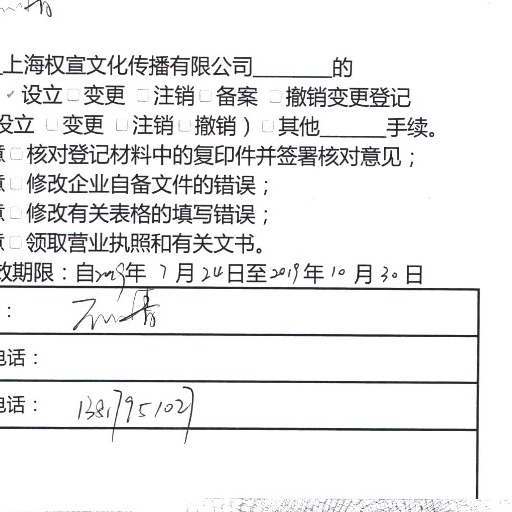 上海权宣文化传播有限公司________的
✓设立□变更 □注销□备案 □撤销变更登记
设立 □变更 □注销□撤销）□其他______手续。
□核对登记材料中的复印件并签署核对意见；
□修改企业自备文件的错误；
□修改有关表格的填写错误；
□领取营业执照和有关文书。
效期限：自2019年 7月24日至2019年10月30日
：
电话：
电话： 13817951027